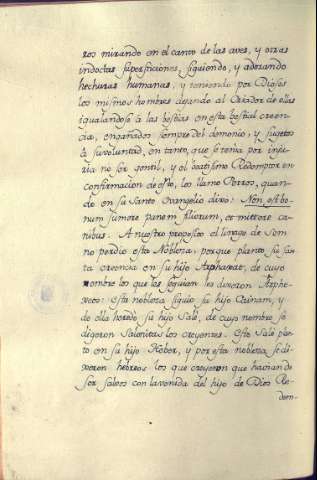 ros mirando en el canto de las aves, y otras
indoctas supersticiones, siguiendo, y adorando
hechuras humanas, y teniendo por Dioses
los mismos hombres dejando al Criador de ellas
igualandose à las bestias en esta bestial creen-
cia, engañados siempre del demonio, y sugetos
à su voluntad, en tanto, que se tenia por inju-
ria no ser gentil, y el Santisimo Redemptor en
confirmacion de esto, los llamo Perros, quan-
do en su Santo Evangelio dixo: Non est bo-
num sumere panem filiorum, et mittere ca-
nibus. A nuestro proposito el linage de Sem
no perdio esta Nobleza, porque planto su san-
ta creencia en su hijo Arphaxat, de cuyo
nombre los que la seguian se dixeron Arphe-
xeos. Esta nobleza siguio su hijo Cainam, y
de ella heredo su hijo Sale, de cuyo nombre se
digeron Salonitas los creyentes. Este Sale plan-
to en su hijo Heber, y por esta nobleza se di-
xeron hebreos los que creyeron que havian de
ser salvos con la venida del hijo de Dios Re-
dem-